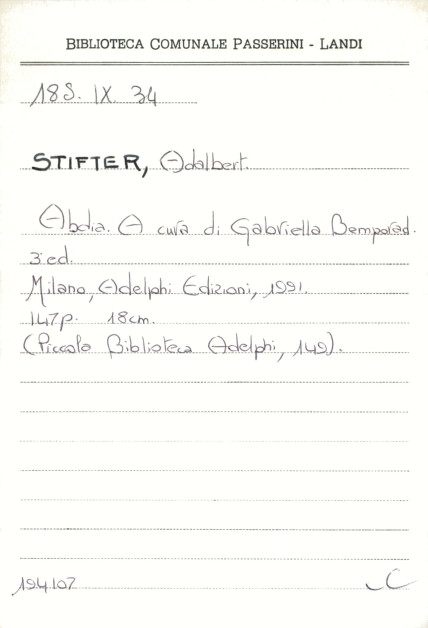 BIBLIOTECA COMUNALE PASSERINI - LANDI
18S. IX. 34
STIFTER, Adalbert.
Abdia. A cura di Gabriella Bemporad.
3ª ed.
Milano, Adelphi Edizioni, 1991.
147p. 18cm.
(Piccola Biblioteca Adelphi, 149).
194107